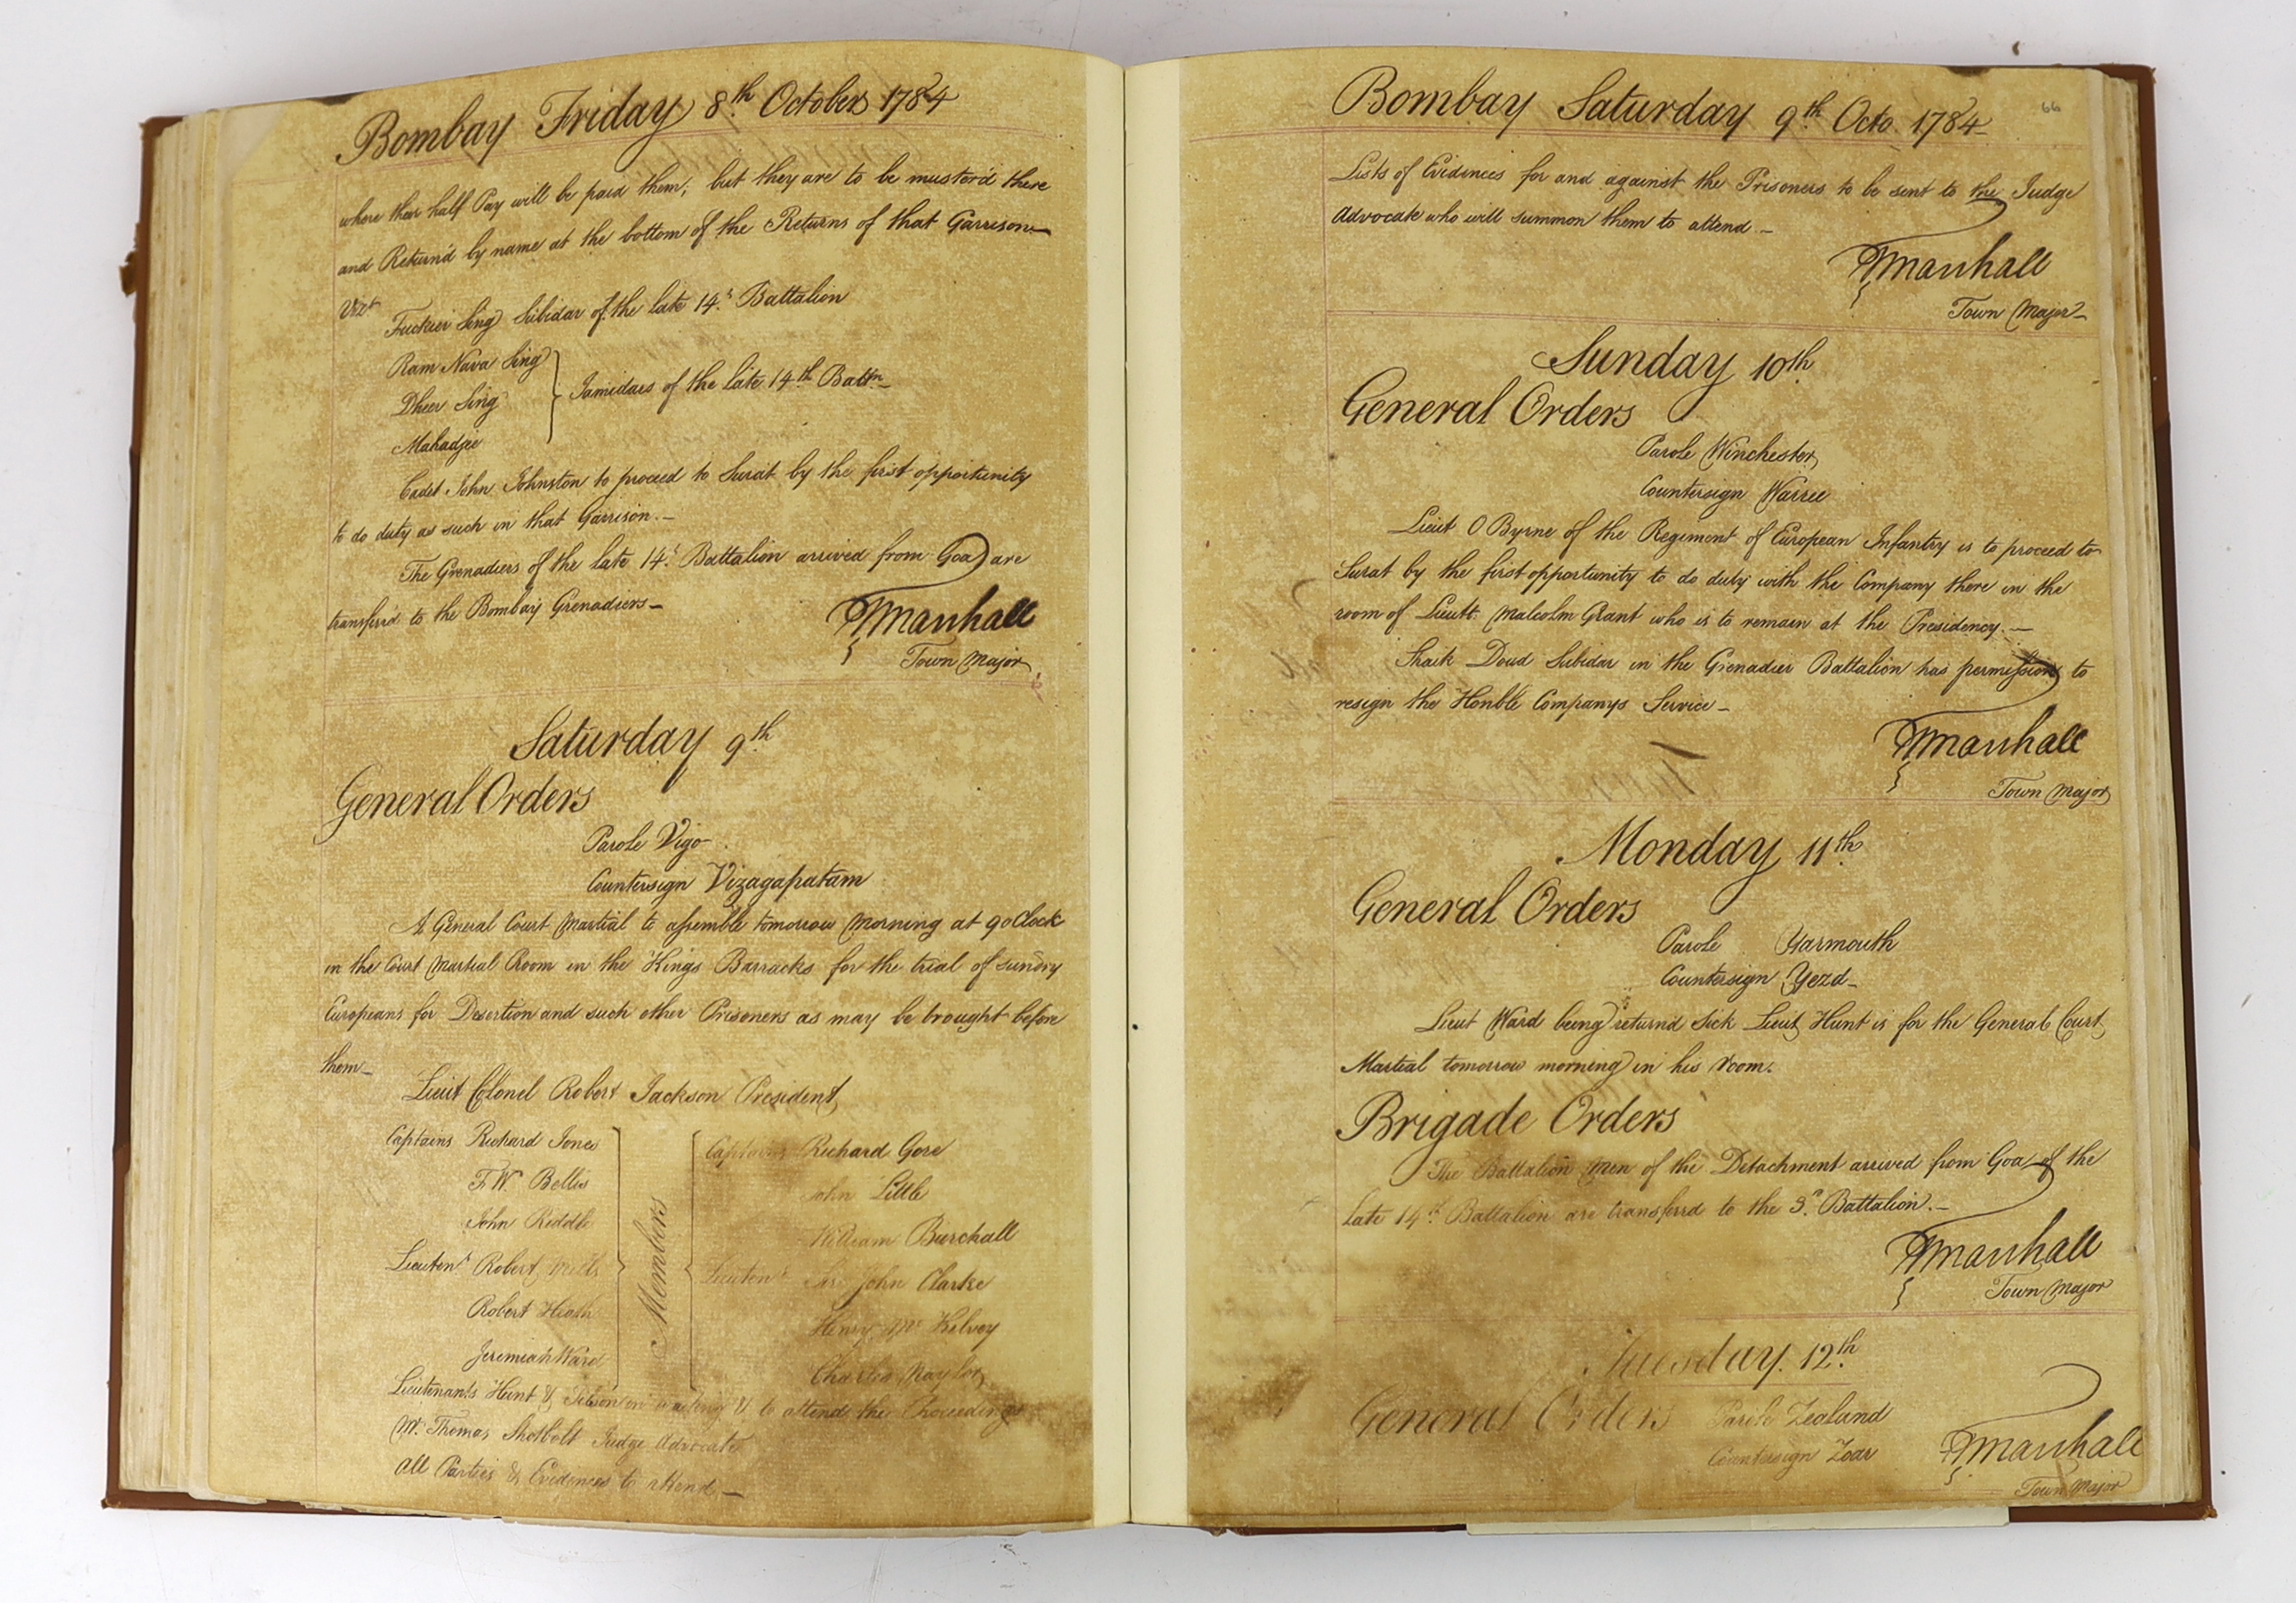 Bombay Friday 8th October 1784
where their half Pay will be paid them, but they are to be muster'd there
and Return'd by name at the bottom of the Returns of that Garrison
Vizt
Fuckeer Sing Subidar of the late 14th Battalion
Ram Nava Sing
Dheer Sing
Mahadjee
Jamidars of the late 14th Battn
Cadet John Johnston to proceed to Surat by the first opportunity
to do duty as such in that Garrison.—
The Grenadiers of the late 14th Battalion arrived from Goa are
transferr'd to the Bombay Grenadiers—
Marshall
Town Major
Saturday 9th
General Orders
Parole Vigo
Countersign Vizagapatam
A General Court Martial to assemble tomorrow Morning at 9 oClock
in the Court Martial Room in the Kings Barracks for the trial of sundry
Europeans for Desertion and such other Prisoners as may be brought before
them—
Lieut Colonel Robert Jackson President
Captains Richard Jones
F. W. Bellis
John Riddle
Lieutents Robert
Robert Heath
Jeremiah Ward
Members
Captains Richard Gore
John Little
William Burchall
Lieutents Sir John Clarke
Henry Mc Kelvey
Charles Naylor
Lieutenants Hunt & in waiting & to attend the Proceedings
Mr Thomas Shotbolt Judge Advocate
All Parties & Evidences to attend.—
Bombay Saturday 9th Octo. 1784
66
Lists of Evidences for and against the Prisoners to be sent to the Judge
Advocate who will summon them to attend.—
Marshall
Town Major
Sunday 10th
General Orders
Parole Winchester
Countersign Warree
Lieut O Byrne of the Regiment of European Infantry is to proceed to
Surat by the first opportunity to do duty with the Company there in the
room of Lieutt. Malcolm Grant who is to remain at the Presidency.—
Shaik Doud Subidar in the Grenadier Battalion has permission to
resign the Honble Companys Service—
Marshall
Town Major
Monday 11th
General Orders
Parole Yarmouth
Countersign Yezd—
Lieut Ward being return'd Sick Lieut Hunt is for the General Court
Martial tomorrow morning in his room.
Brigade Orders
The Battalion Men of the Detachment arrived from Goa of the
Late 14th Battalion are transferrd to the 3d Battalion.—
Marshall
Town Major
Tuesday 12th
General Orders
Parole Zealand
Countersign Zoar
Marshall
Town Major